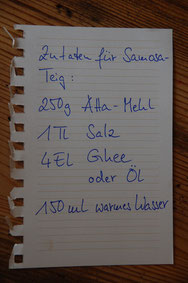 Zutaten für Samosa-
Teig:
250g Atta-Mehl
1 TL Salz
4 EL Ghee
oder Öl
150 ml warmes Wasser